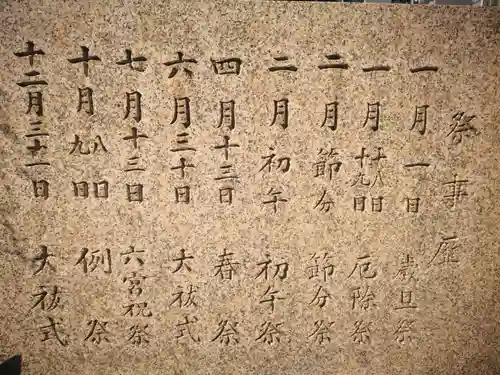 祭事歴
一月一日 歳旦祭
一月十八日十九日 厄除祭
二月節分 節分祭
二月初午 初午祭
四月十三日 春祭
六月三十日 大祓式
七月十三日 六宮祝祭
十月八日九日 例祭
十二月三十一日 大祓式